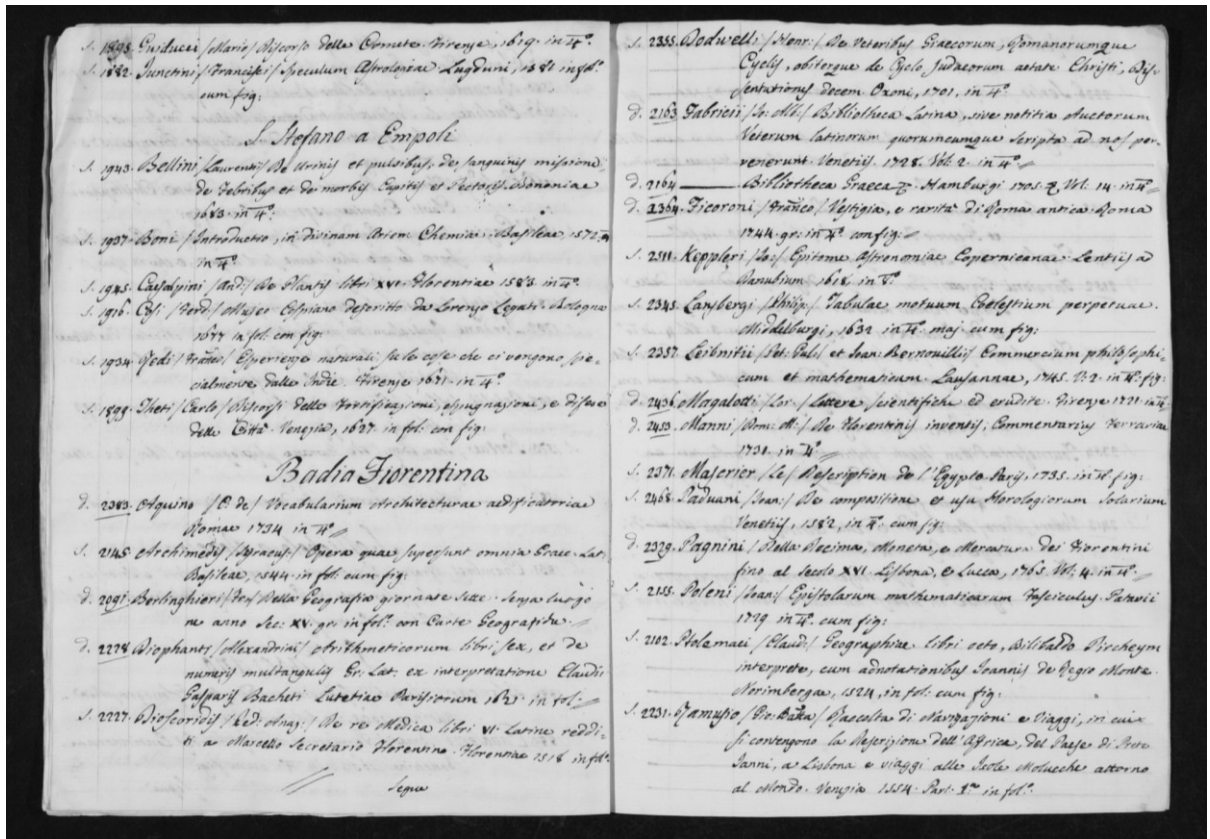 s. 1895. Guiducci /Mario/ Discorso delle Comete. Firenze, 1619. in 4º.
s. 1882. Junctini /Francisci/ Speculum Astrologiae. Lugduni, 1581. in folº.
cum fig:
S. Stefano a Empoli
s. 1943. Bellini /Laurentii/ De Urinis et pulsibus, de sanguinis missione
de Febribus et de morbis Capitis et Pectoris. Bononiae
1683. in 4º.
s. 1937. Boni / Introductio, in divinam Artem Chemiae. Basileae, 1572
in 4º.
s. 1945. Caesalpini /And:/ De Plantis libri XVI. Florentiae 1583. in 4º.
s. 1916. Cesi /Ferd:/ Museo Cospiano descritto da Lorenzo Legati. Bologna
1677 in fol: con fig:
s. 1934. Redi /Franco/ Esperienze naturali su le cose che ci vengono spe-
cialmente dalle Indie. Firenze 1671. in 4º.
s. 1899. Theti /Carlo/ Discorsi delle Fortificazioni, espugnazioni, e difese
delle Città. Venezia, 1627. in fol: con fig:
Badia Fiorentina
d. 2383. Aquino /C: de/ Vocabularium Architecturae aedificatoriae
Romae 1734 in 4º.
s. 2145. Archimedis /Syracus:/ Opera quae supersunt omnia Graece. Lat:
Basileae, 1544. in fol: cum fig:
d. 2091. Berlinghieri /Fr:/ Della Geografia giornate Sette. Senza luogo
ne anno Sec: XV. gr: in folº. con Carte Geografiche.
d. 2278. Diophanti /Alexandrini/ Arithmeticorum libri sex, et de
numeris multangulis Gr: Lat: ex interpretatione Claudii
Gasparis Bacheti Lutetiae Parisiorum 1621. in fol:
s. 2227. Dioscoridis /Ped: Anaz:/ De rei Medica libri VI. Latine reddi-
ti a Marcello Secretario Florentino. Florentiae 1518 in folº.
Segue
s. 2355. Dodwelli /Henr:/ De Veteribus Graecorum, Romanorumque
Cyclis, obiterque de Cyclo Judaeorum aetate Christi, Dis-
sertationes decem. Oxonii, 1701, in 4º.
d. 2163. Fabricii /Jo: Alb:/ Bibliotheca Latina, sive notitia Auctorum
Veterum latinorum quorumcumque scripta ad nos per-
venerunt Venetiis. 1728. Vol: 2. in 4º.
d. 2164. ——— Bibliotheca Graeca. Hamburgi 1705. Vol: 14. in 4º.
d. 2364. Ficoroni /Franco/ Vestigia, e rarità di Roma antica. Roma
1744. gr: in 4º. con fig:
s. 2511. Keppleri /Jo:/ Epitome Astronomiae Copernicanae. Lentiis ad
Danubium 1618. in 8º.
s. 2345. Lansbergi /Philip:/ Tabulae motuum Coelestium perpetuae.
Middelburgi, 1632. in 4º. maj: cum fig:
s. 2357. Leibnitii /Got: Guls:/ et Joan: Bernouillii Commercium philosophi-
cum et mathematicum. Lausannae, 1745. V: 2. in 4º. fig:
d. 2436. Magalotti /Lor:/ Lettere scientifiche ed erudite. Firenze 1721. in 4º.
d. 2453. Manni /Dom: M:/ De Florentinis inventis, Commentarius Ferrariae
1731. in 4º.
s. 2371. Mascrier /Le/ Description de l'Egypte. Paris, 1735. in 4º. fig:
s. 2468. Paduani /Joan:/ De compositione et usu Horologiorum Solarium
Venetiis, 1582, in 4º. cum fig:
d. 2329. Pagnini / Della Decima, Moneta, e Mercatura dei Fiorentini
fino al Secolo XVI. Lisbona, e Lucca, 1765. Vol: 4. in 4º.
s. 2155. Poleni /Joan:/ Epistolarum mathematicarum Fasciculus. Patavii
1729. in 4º. cum fig:
s. 2102. Ptolemaei /Claud:/ Geographiae libri octo, Bilibaldo Pircheym
interprete, cum adnotationibus Joannis de Regio Monte.
Norimbergae, 1524, in fol: cum fig:
s. 2231. Ramusio /Gio: Batta/ Raccolta di Navigazioni e Viaggi, in cui
si contengono la Descrizione dell'Affrica, del Paese di Prete
Ianni, a Lisbona e viaggi alle Isole Molucche attorno
al Mondo. Venezia 1554. Part: 1ma in folº.